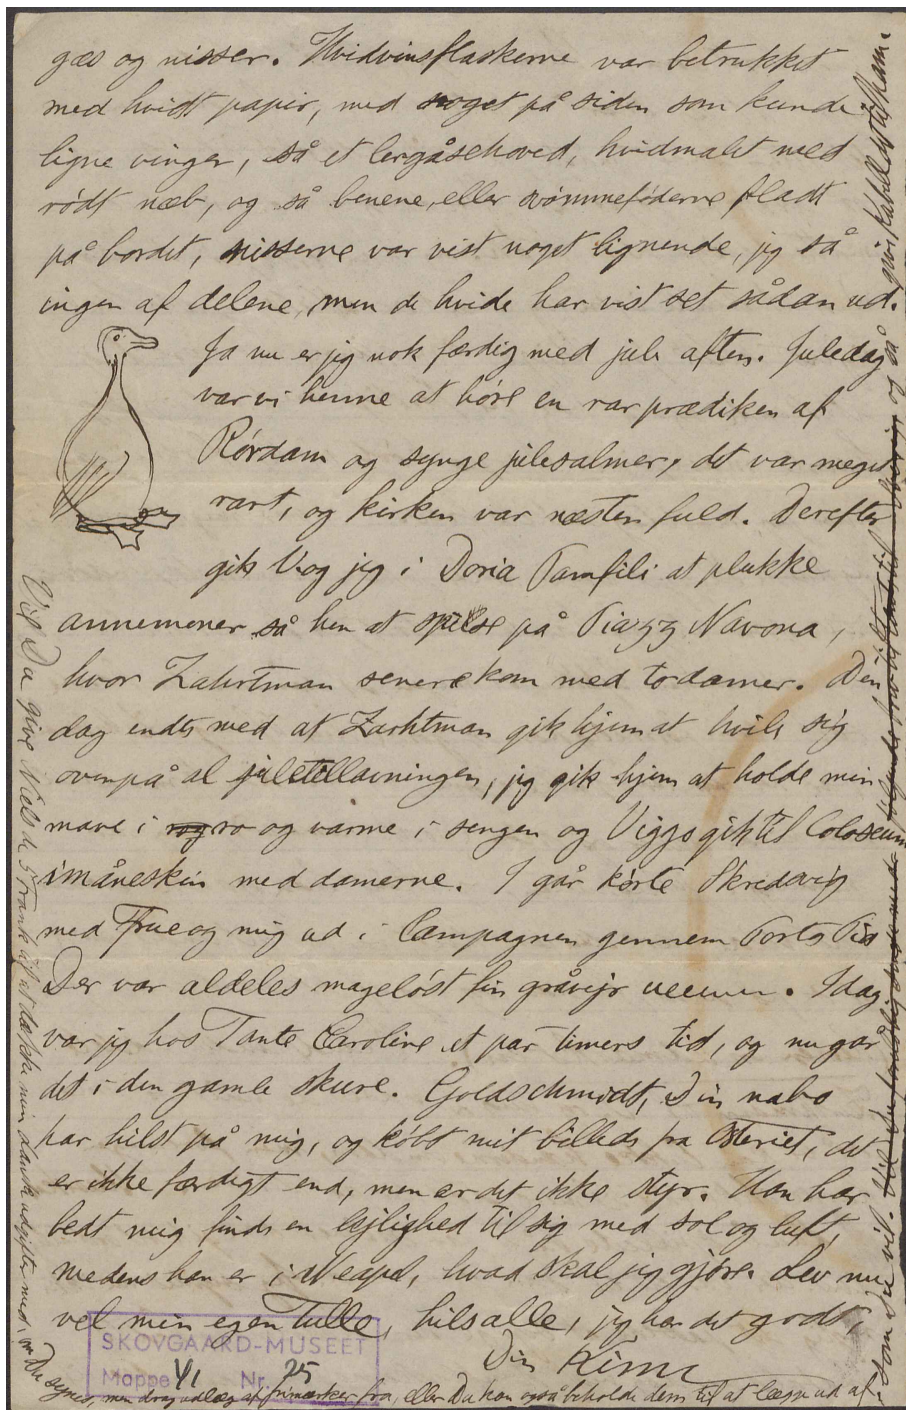 gæs og nisser. Hvidvinsflaskerne var betrukket
med hvidt papir, med noget på siden som kunde
ligne vinger, så et lergåsehoved, hvidmalet med
rødt næb, og så benene, eller svømmefødderne fladt
på bordet, nisserne var vist noget lignende, jeg så
ingen af delene, men de hvide har vist set sådan ud.
Ja nu er jeg nok færdig med jule aften. Juledag
var vi henne at høre en rar prædiken af
Rørdam og synge julesalmer, det var meget
rart, og kirken var næsten fuld. Derefter
gik V. og jeg i Doria Pamfili at plukke
annemoner så hen at spise på Piazz Navona,
hvor Zahrtman senere kom med to damer. Den
dag endte med at Zarhtman gik hjem at hvile sig
ovenpå al juletillavningen, jeg gik hjem at holde min
mave i ro og varme i sengen og Viggo gik til Coloseum
i måneskin med damerne. I går kørte Skredsvig
med Frue og mig ud i Campagnen gennem Porta Pia
Der var aldeles mageløst fin gråvejr. Idag
var jeg hos Tante Caroline et par timers tid, og nu går
det i den gamle skure. Goldschmidt, Din nabo
har hilst på mig, og købt mit billede fra Osteriet, det
er ikke færdigt end, men er det ikke styr. Han har
bedt mig finde en lejlighed til sig med sol og luft,
medens han er i Neapel, hvad skal jeg gjøre. Lev nu
vel min egen Tulle, hils alle, jeg har det godt,
Din
SKOVGAARD-MUSEET
Mappe V1 Nr. 25
Vil Da give Niels de 5 Frank til at dække min dansk udgifter med, om
Du synes, men drag udlæg af frimærker fra, eller Du kan også beholde dem til at lægge ud af
som Du vil. og så